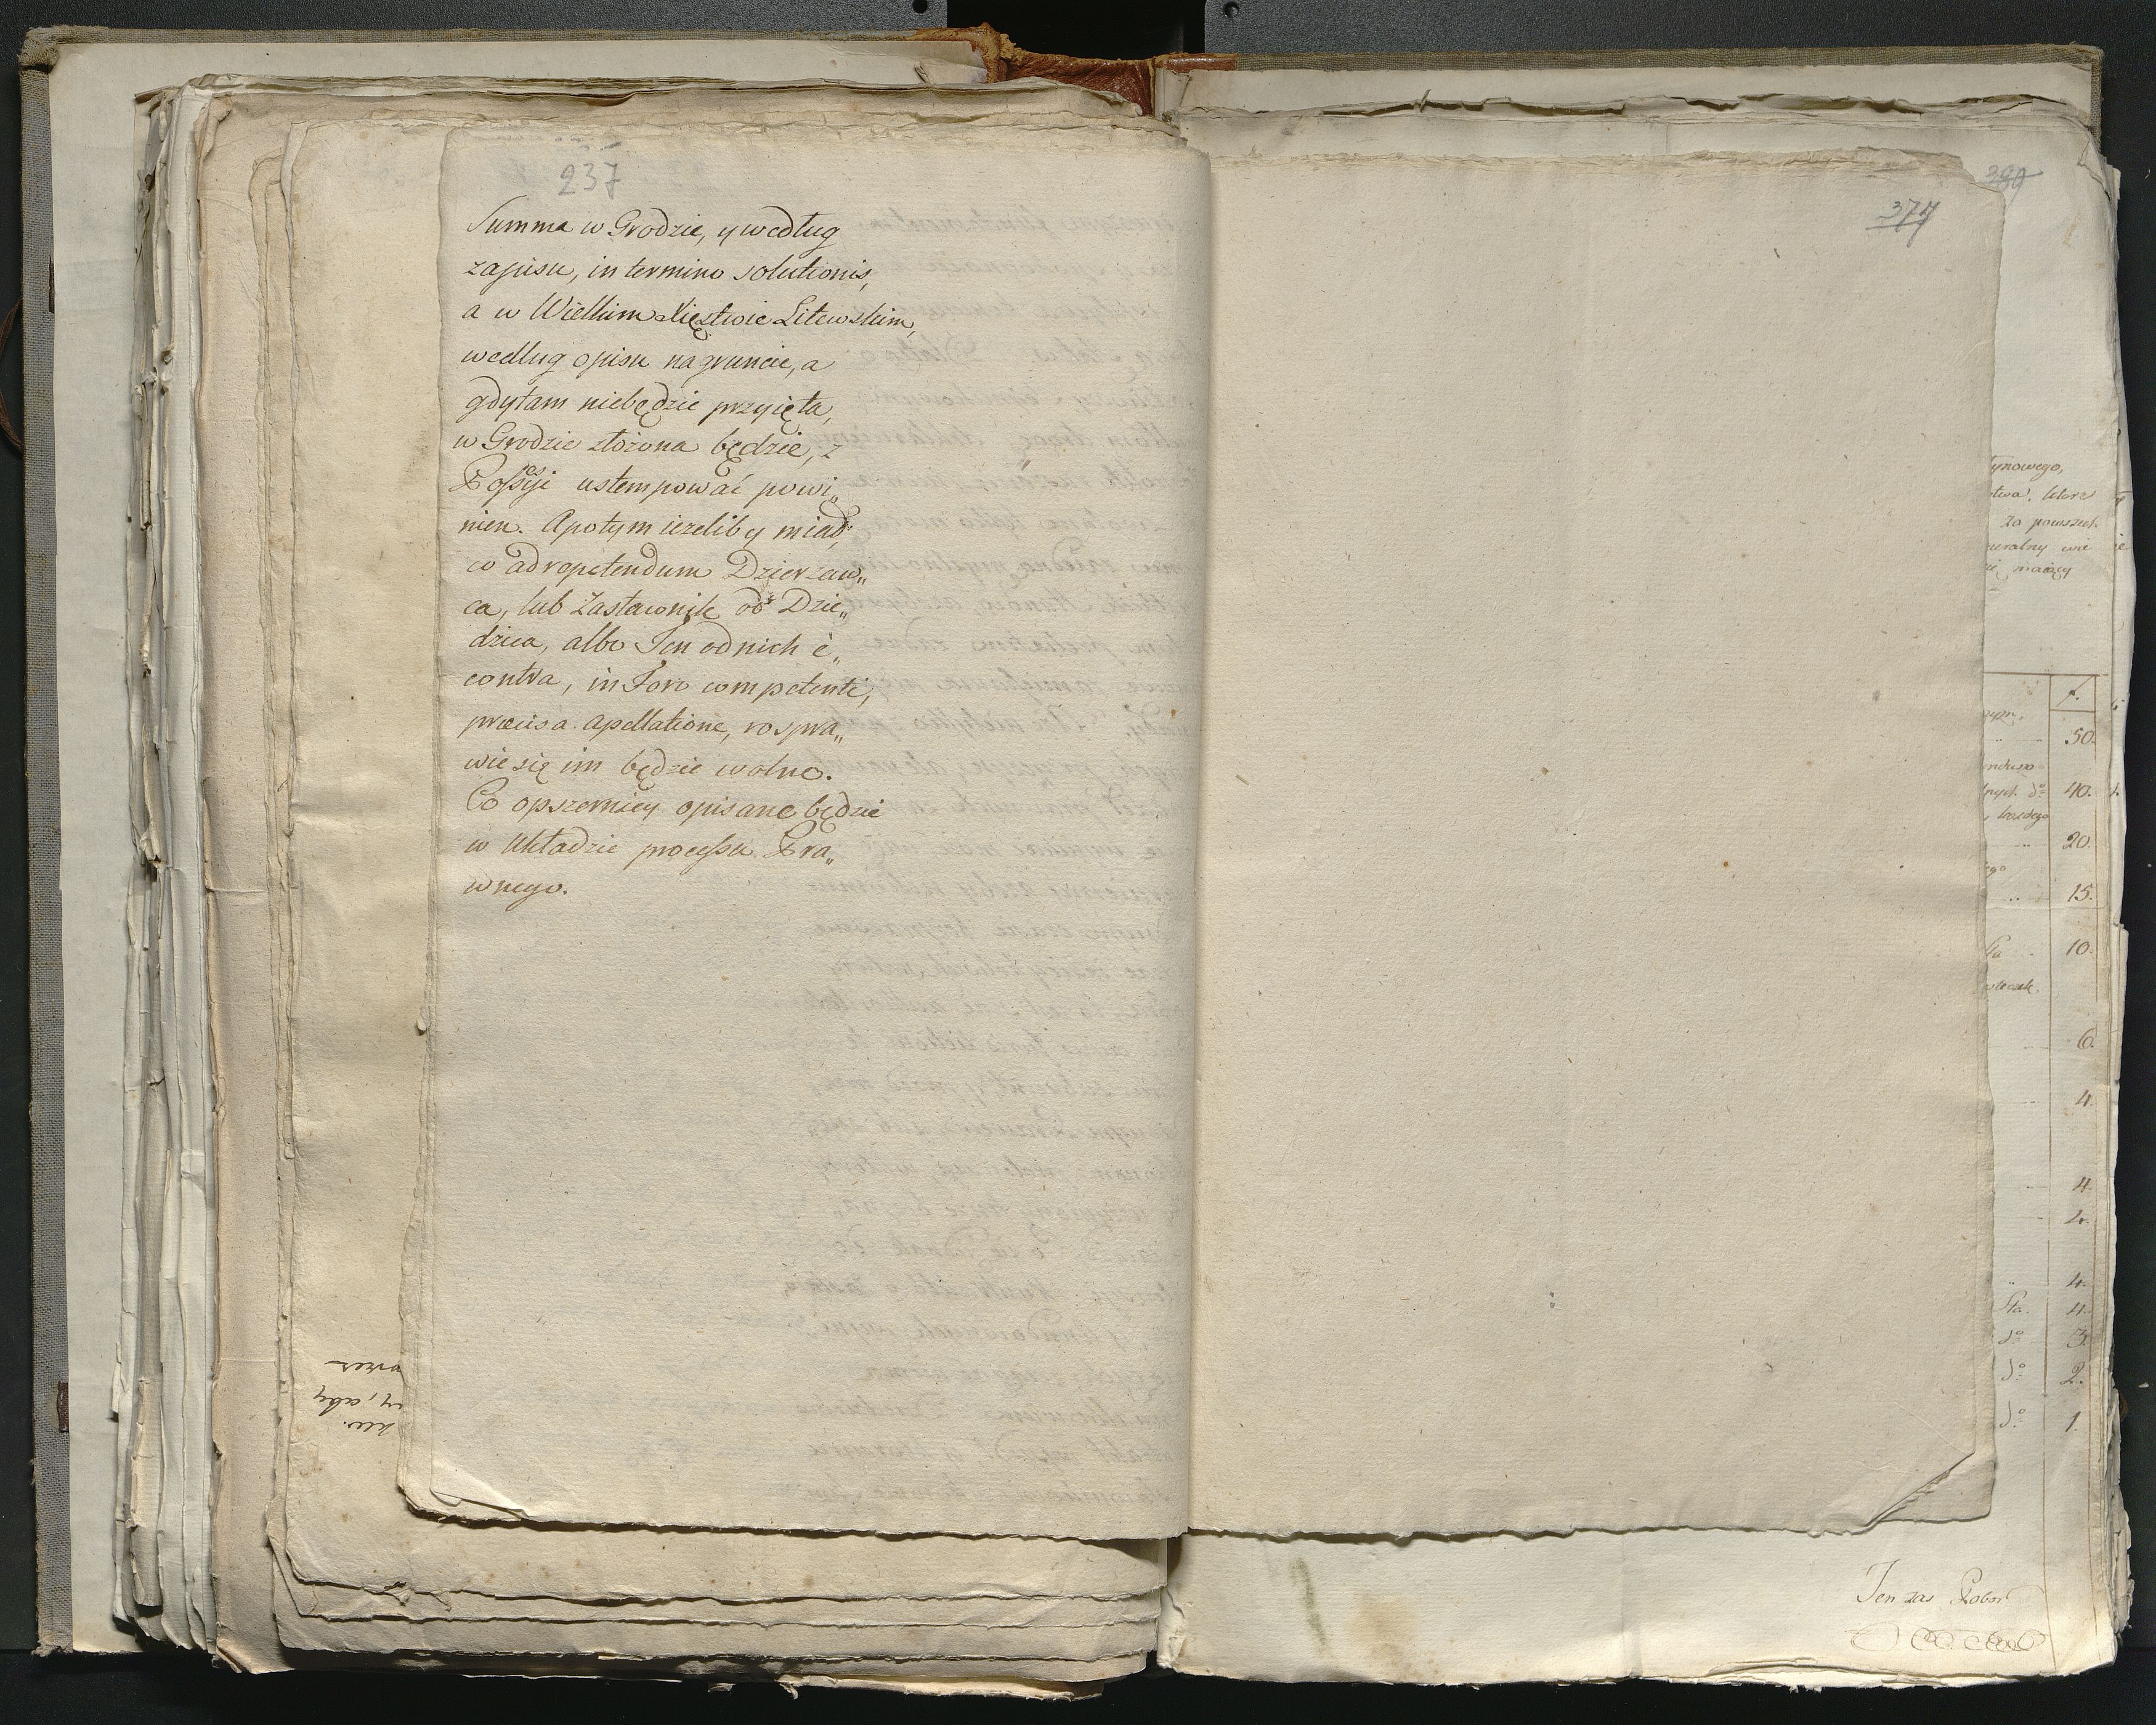 237
Summa w Grodzie, y według
zapisu, in termino solutionis,
a w Wielkim Xięstwie Litewskim,
według opisu na gruncie, a
gdy tam niebędzie przyięta,
w Grodzie złożona będzie, z
Possesyi ustempować powi„
nien. A potym ieżeliby miał
co ad repetendum Dzierżaw„
ca, lub Zastawnik od Dzie„
dzica, albo Ten od nich è„
contra, in Foro competenti,
præcisa apellatione, rospra„
wić się im będzie wolno.
Co opszerniey opisane będzie
w Układzie processu Pra„
wnego.
374
tynowego,
które
za powszech
maiący
f.
50.
40.
20.
15.
10.
6.
4.
4.
2.
4.
4.
do 3.
do 2.
do 1.
y, aby
Ten zas Pobor